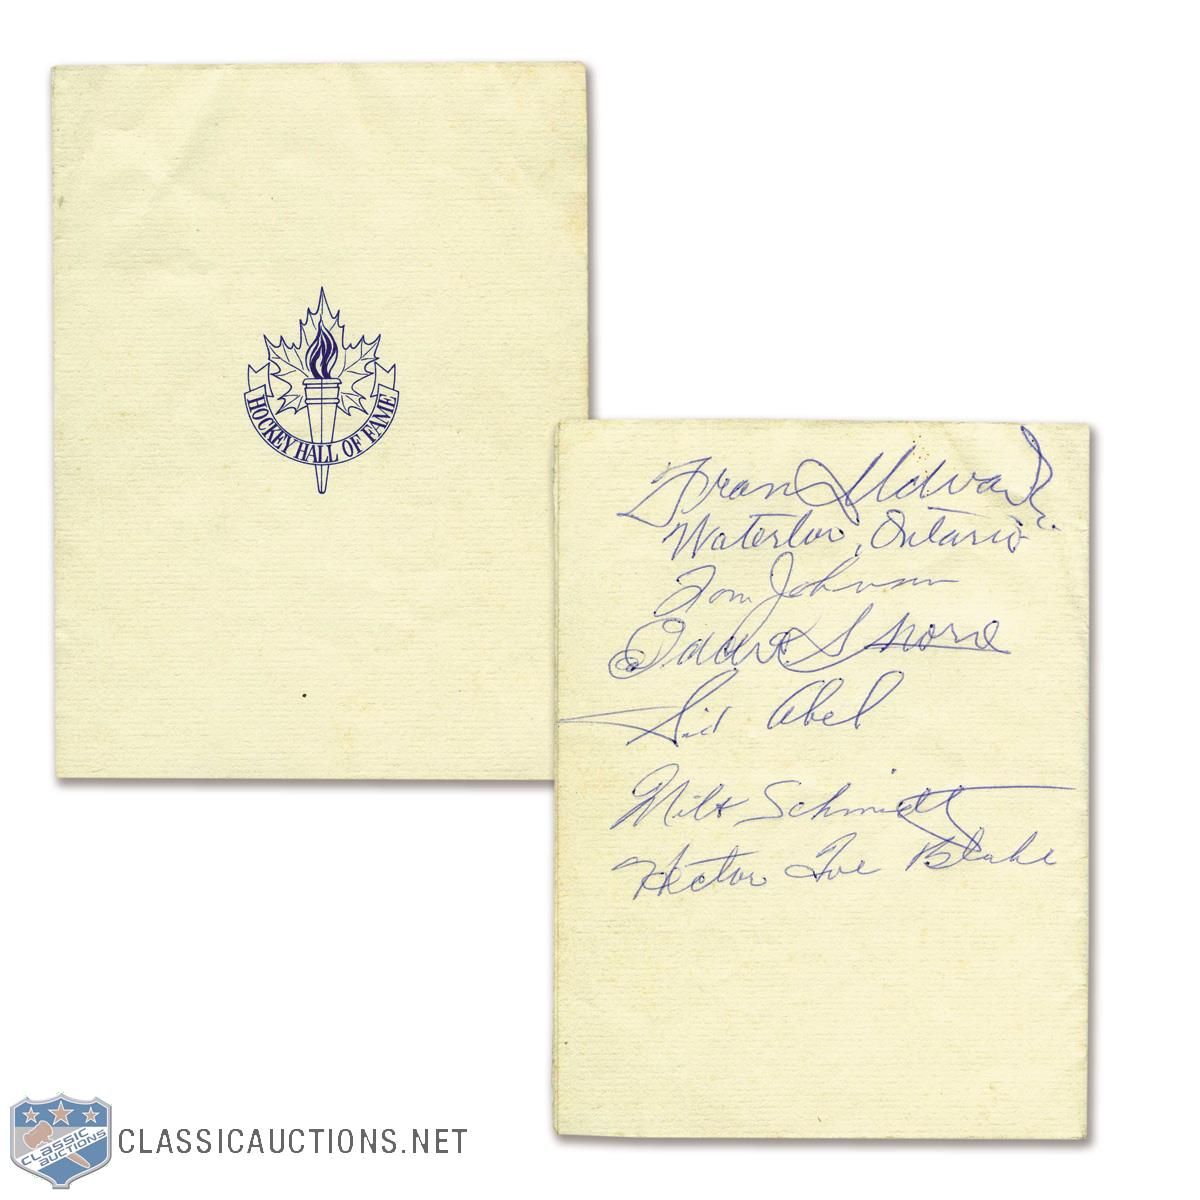 HOCKEY HALL OF FAME
Frank Udvari.
Waterloo, Ontario
Tom Johnson
Eddie Shore
Sid Abel
Milt Schmidt
Hector Toe Blake
CLASSIC
AUCTIONS
CLASSICAUCTIONS.NET